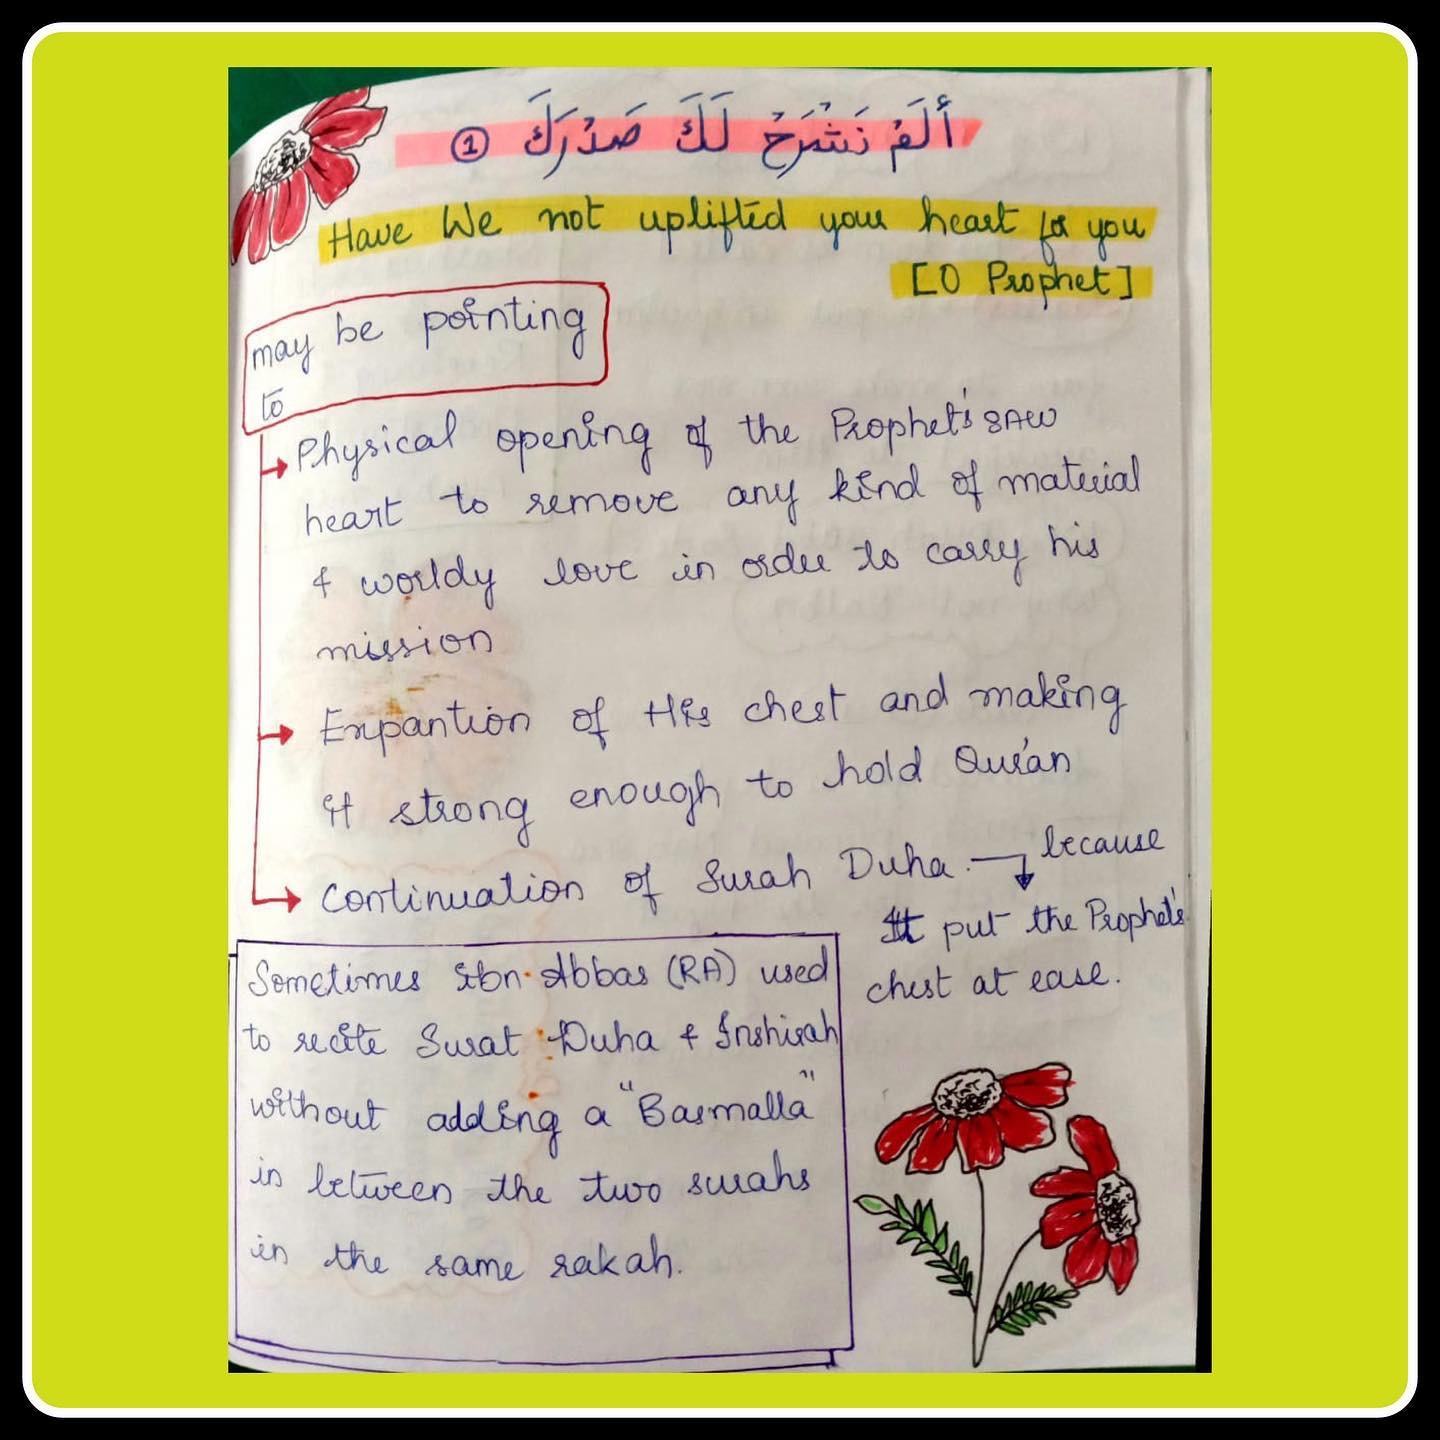 أَلَمْ نَشْرَحْ لَكَ صَدْرَكَ ①
Have We not uplifted your heart for you
[O Prophet]
may be pointing
to
Physical opening of the Prophet's SAW
heart to remove any kind of material
& worldy love in order to carry his
mission
Expantion of His chest and making
it strong enough to hold Qur'an
Continuation of Surah Duha. because
It put the Prophet's
chest at ease.
Sometimes Ibn Abbas (RA) used
to recite Surat Duha & Inshirah
without adding a "Basmalla"
in between the two surahs
in the same rakah.